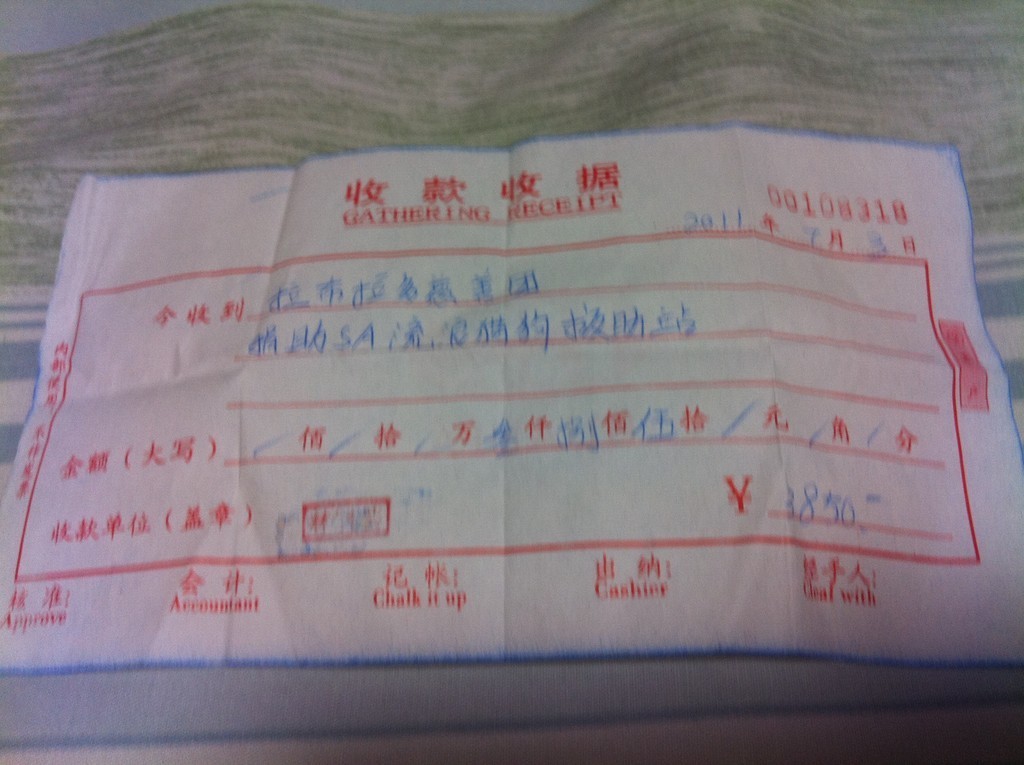 收款收据
GATHERING RECEIPT
00108318
2011年7月3日
今收到 拉布拉多慈善团
捐助SA流浪猫狗救助站
金额（大写） / 佰 / 拾 / 万 叁仟捌佰伍拾 / 元 / 角 / 分
收款单位（盖章） ￥ 3850.-
核准： 会计： 记帐： 出纳： 经手人：
Approve Accountant Chalk it up Cashier Deal with
内部使用 不作发票